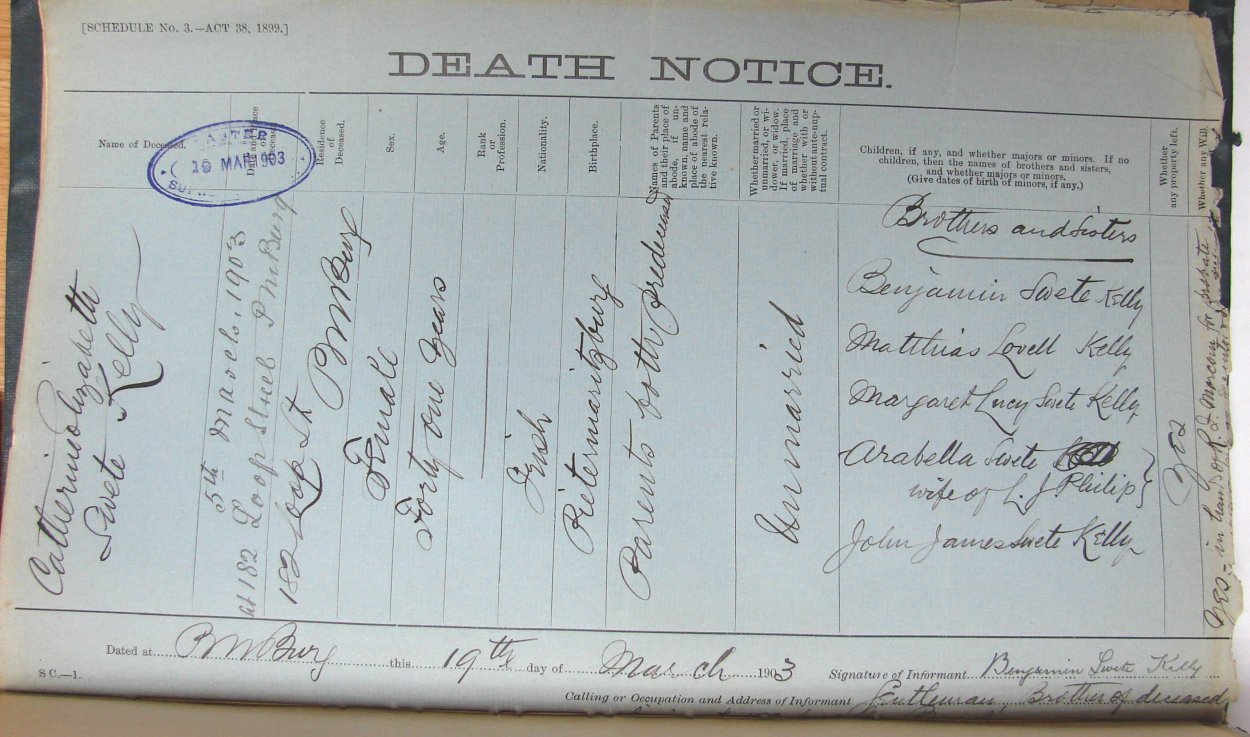 [SCHEDULE No. 3.—ACT 38, 1899.]
DEATH NOTICE.
Name of Deceased.
MASTER
19 MAR 1903
SUP
Residence
of
Deceased.
Sex.
Age.
Rank
or
Profession.
Nationality.
Birthplace.
Names of Parents
and their place of
abode, if un-
known, name and
place of abode of
the nearest rela-
tive known.
Whether married or
unmarried, or wi-
dower, or widow.
If married, place
of marriage and
whether with or
without ante-nup-
tual contract.
Children, if any, and whether majors or minors. If no
children, then the names of brothers and sisters,
and whether majors or minors.
(Give dates of birth of minors, if any.)
Whether
any property left.
Whether any Will.
Catherine Elizabeth
Swete Kelly
5th March, 1903
at 182 Loop Street PmBurg
182 Loop St
PMBurg
Female
Forty one years
Irish
Pietermaritzburg
Parents both predeceased
Unmarried
Brothers and Sisters
Benjamin Swete Kelly
Matthias Lovell Kelly
Margaret Lucy Swete Kelly
Arabella Swete
wife of L. J Philip
John James Swete Kelly
Yes
Yes - in hands of for probate
Dated at PMBurg this 19th day of March 1903
Signature of Informant Benjamin Swete Kelly
S C.—1.
Calling or Occupation and Address of Informant Gentleman, Brother of deceased